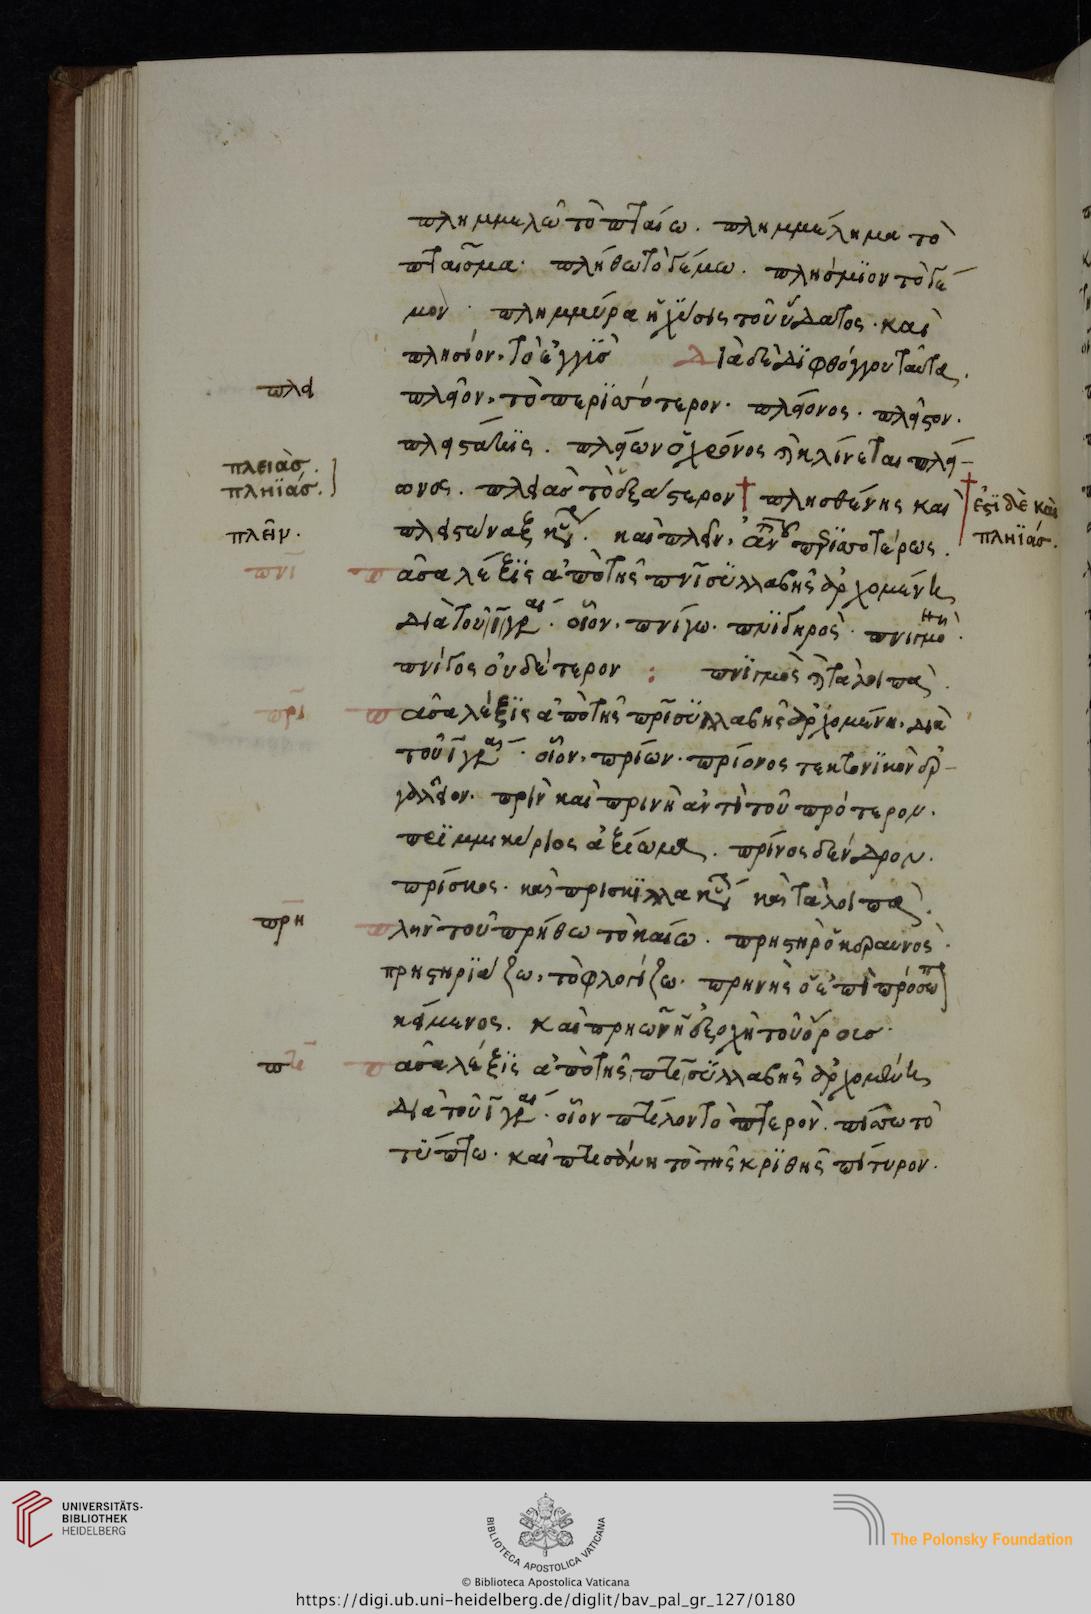 πλημμελῶ τὸ πταίω. πλημμέλημα τὸ
πταῖσμα· πλήθω τὸ γέμω. πλήσμϊον τὸ γέ
μον· πλημμύρα ἡ χύσις τοῦ ὕδατος· καὶ
πλησίον, τὸ ἐγγϊσ Διὰ δὲ διφθόγγου ταῦτα,
πλεῖον, τὸ περϊσσότερον· πλείονος· πλεῖστον.
πλει
πλειστάκϊς. πλείων ὁ χρόνος κλίνεται πλεί
πλειὰσ.
πληϊάσ.
ωνος. πλειὰσ τὸ ἄστρον † πλησθένης καὶ
† ἔστϊ δὲ καὶ
πληϊάσ.
πλεῖν.
πλειστώναξ κύ. καὶ πλεῖν, ἀντὶ τοῦ περϊσσοτέρως.
πνι
πᾶσα λέξϊς ἀπὸ τῆς πνι συλλαβῆς ἀρχομένη
διὰ τοῦ ι γρά. οἷον, πνίγω. πνϊγηρὸς. πνιγμονη
πνίγος οὐδέτερον : πνϊγμὸς καὶ τὰ λοιπὰ.
πρι
πᾶσα λέξϊς ἀπὸ τῆς πρι συλλαβῆς ἀρχομένη, διὰ
τοῦ ι γρά. οἷον, πρίων. πρίονος τεκτονϊκὸν ὀρ
γαλεῖον. πρὶν καὶ πρινὴ ἀντὶ τοῦ πρότερον.
πρϊμμικήριος ἀξίωμα. πρίνος δένδρον.
πρίσκος. καὶ πρισκϊλλα κύ καὶ τὰ λοιπὰ.
πρη
πλὴν τοῦ πρήθω τὸ καίω. πρηστὴρ ὁ κεραυνὸς.
πρηστηρϊάζω, τὸ φλογίζω. πρηνὴς ὁ ἐπὶ πρόσωπ
κείμενος. καὶ πρηὼν ἡ ἐξοχὴ τοῦ ὄρουσ.
πτε
πᾶσα λέξϊς ἀπὸ τῆς πτε συλλαβῆς ἀρχομένη
διὰ τοῦ ι γρά. οἷον πτίλον τὸ πτερὸν. πτίσσω τὸ
τύπτω. καὶ πτισάνη τὸ τῆς κρϊθῆς πίτυρον.
UNIVERSITÄTS-
BIBLIOTHEK
HEIDELBERG
BIBLIOTECA APOSTOLICA VATICANA
The Polonsky Foundation
© Biblioteca Apostolica Vaticana
https://digi.ub.uni-heidelberg.de/diglit/bav_pal_gr_127/0180